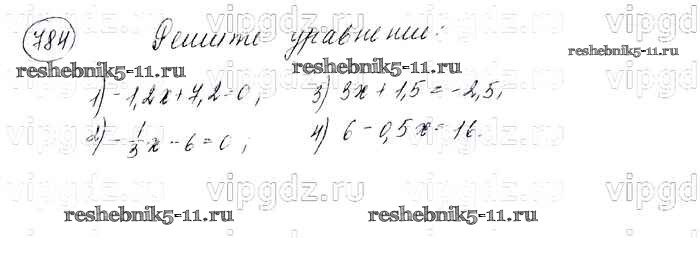 vipgdz.ru vipgdz.ru vipgdz.ru vipgdz
784 Решите уравнения:
reshebnik5-11.ru reshebnik5-11.ru reshebnik5-11.ru
1) -1,2x+7,2=0; 3) 3x+1,5=-2,5;
2) -1/3x-6=0; 4) 6-0,5x=16.
vipgdz.ru vipgdz.ru vipgdz.ru vipgdz
reshebnik5-11.ru reshebnik5-11.ru
vipgdz.ru vipgdz.ru vipgdz.ru vipgdz